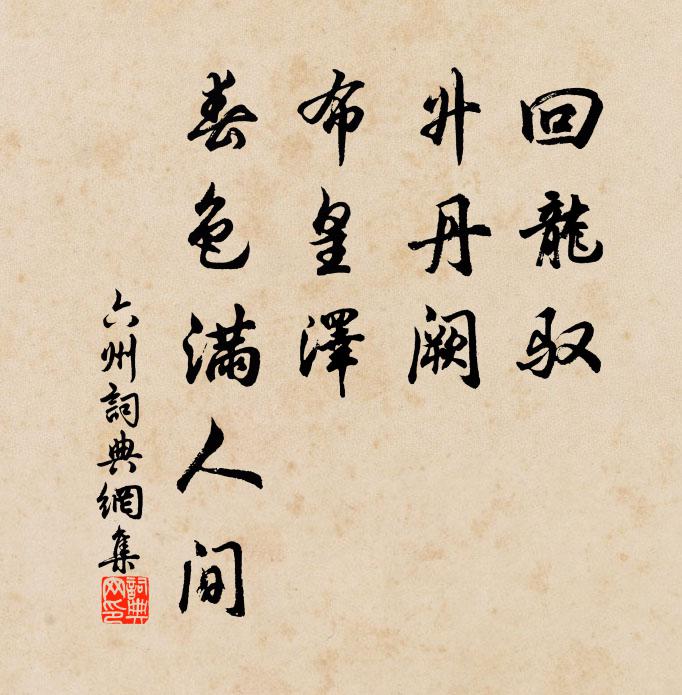 回龍驭
升丹阙
布皇澤
春色滿人间
六州詞典網集
詞典网印